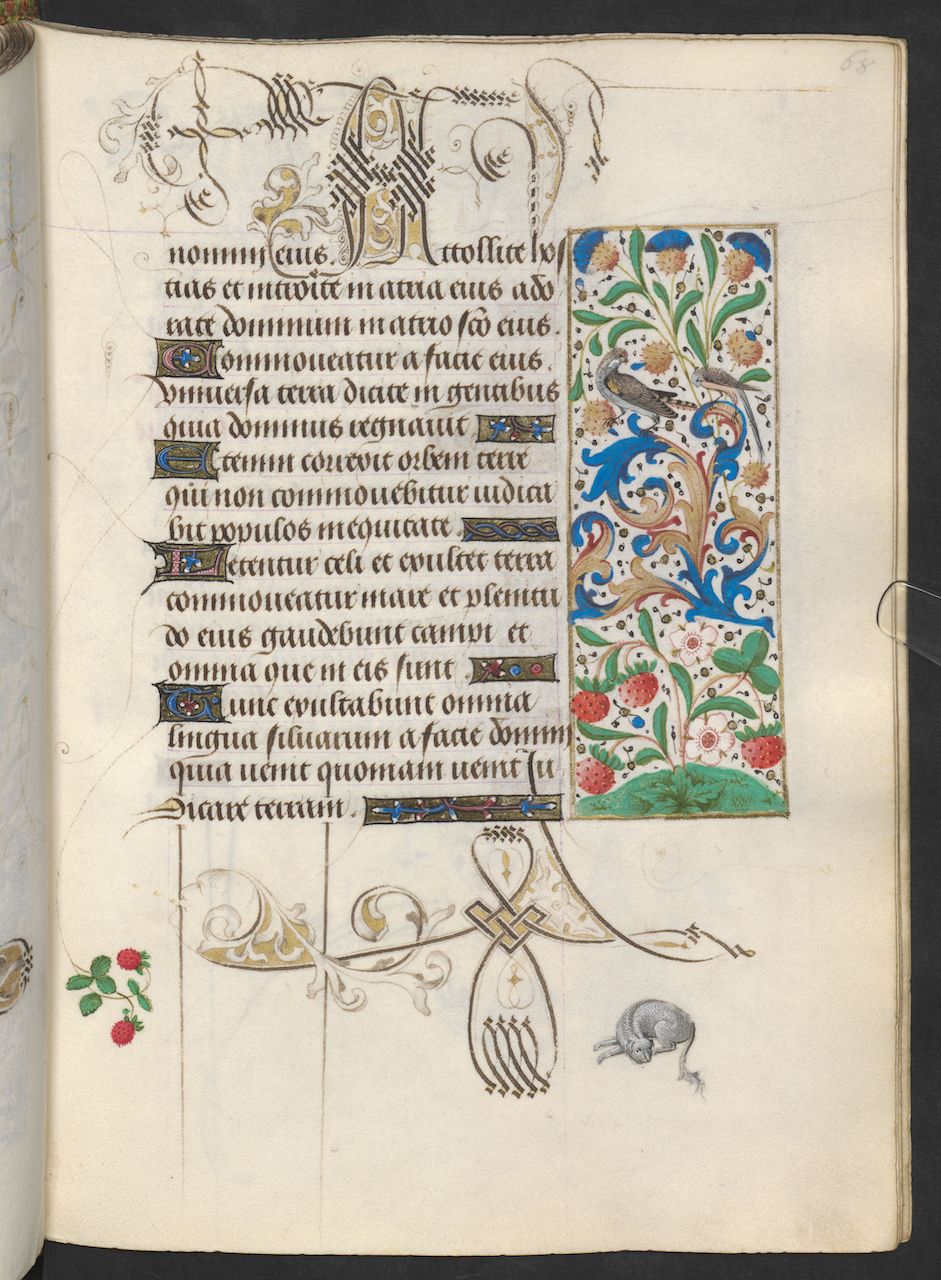 68
nomini eius. Attollite hos
tias et introite in atria eius ado
rate dominum in atrio sco eius.
Commoueatur a facie eius
vniuersa terra dicite in gentibus
quia dominus regnauit
Etenim correxit orbem terre
qui non commouebitur iudica
bit populos in equitate
Letentur celi et exultet terra
commoueatur mare et plenitu
do eius gaudebunt campi et
omnia que in eis sunt
Tunc exultabunt omnia
lingua siluarum a facie domini
quia uenit quoniam uenit iu
dicare terram.